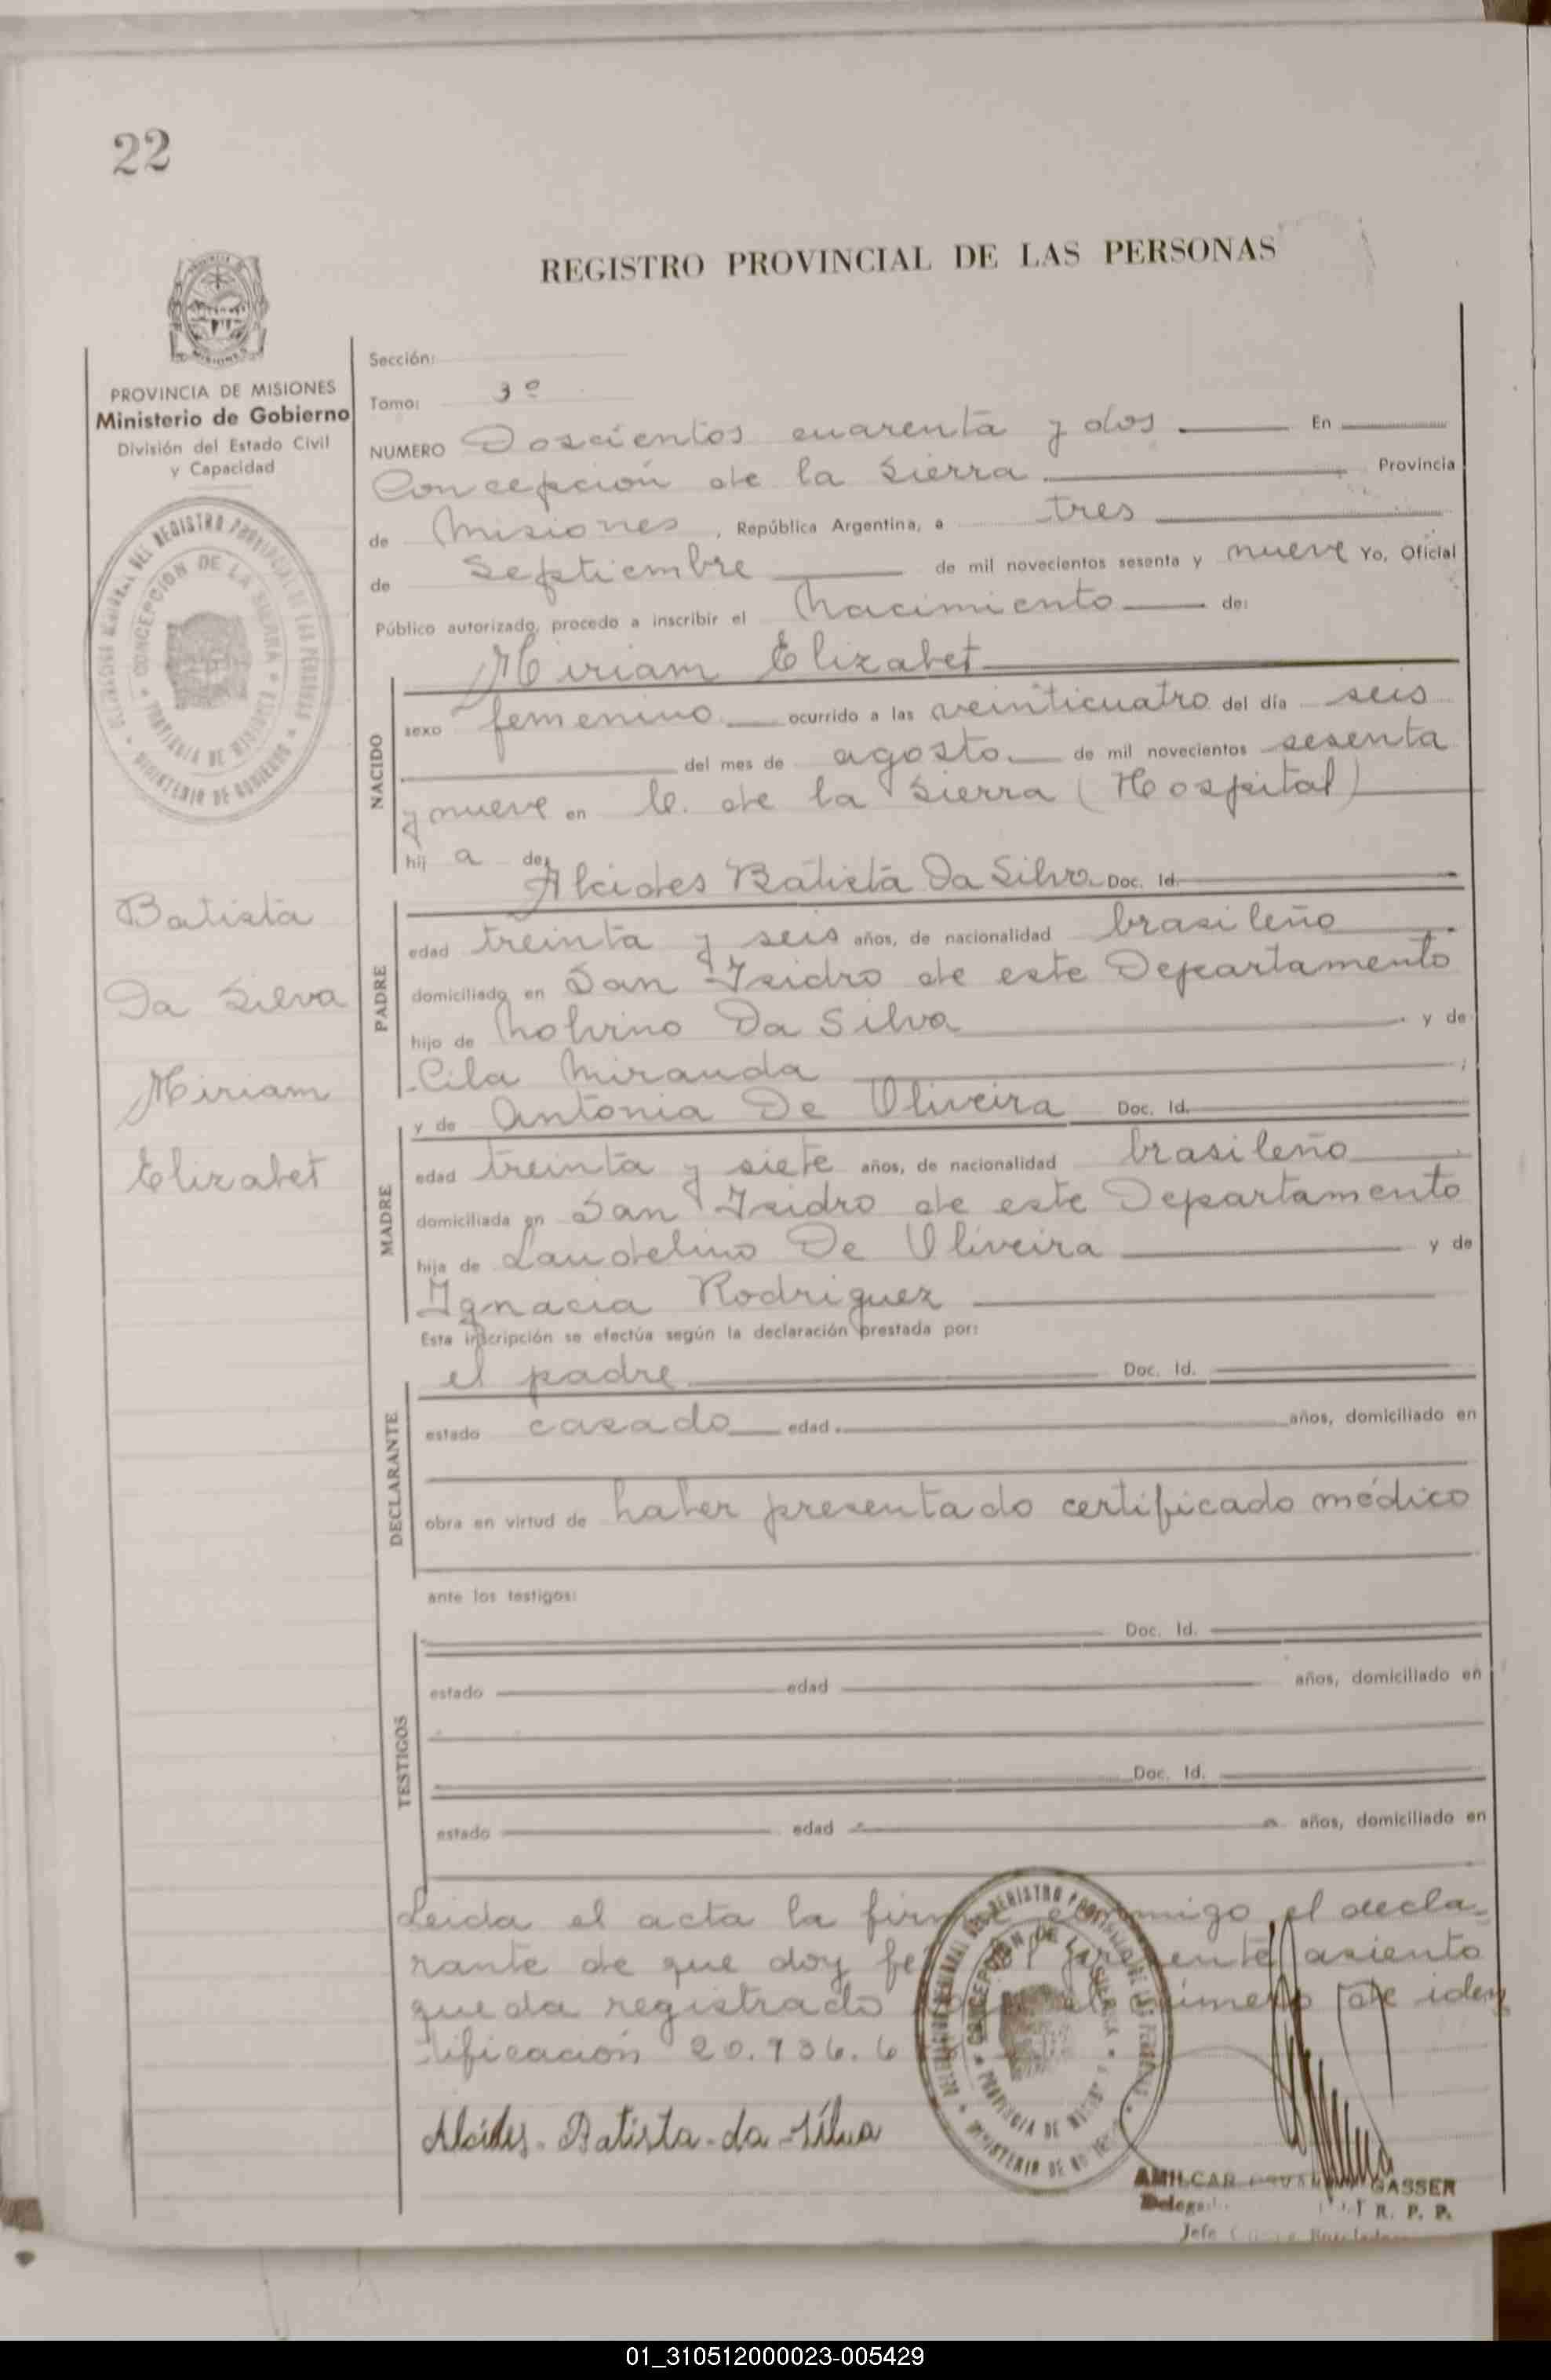 22
REGISTRO PROVINCIAL DE LAS PERSONAS
PROVINCIA DE MISIONES
Ministerio de Gobierno
División del Estado Civil
y Capacidad
Batista
Da Silva
Miriam
Elizabet
Sección:
Tomo: 3º
NUMERO Doscientos cuarenta y dos En
Concepción de la Sierra Provincia
de Misiones, República Argentina, a tres
de Septiembre de mil novecientos sesenta y nueve Yo, Oficial
Público autorizado, procedo a inscribir el Nacimiento de:
Miriam Elizabet
NACIDO
sexo femenino ocurrido a las veinticuatro del día seis
del mes de agosto de mil novecientos sesenta
y nueve en C. de la Sierra (Hospital)
hij a de
Alcides Batista Da Silva Doc. Id.
PADRE
edad treinta y seis años, de nacionalidad brasileño
domiciliado en San Isidro de este Departamento
hijo de Da Silva y de
Miranda ;
y de Antonia De Oliveira Doc. Id.
MADRE
edad treinta y siete años, de nacionalidad brasileño
domiciliada en San Isidro de este Departamento
hija de Laudelino De Oliveira y de
Ignacia Rodriguez
Esta inscripción se efectúa según la declaración prestada por:
el padre Doc. Id.
DECLARANTE
estado casado edad años, domiciliado en
obra en virtud de haber presentado certificado médico
ante los testigos:
TESTIGOS
Doc. Id.
estado edad años, domiciliado en
Doc. Id.
estado edad años, domiciliado en
Leida el acta la firma conmigo el decla-
rante de que doy fe. El presente asiento
queda registrado el número de iden
tificación 20.936.6
Alcides-Batista-da-Silva
CONCEPCION DE LA SIERRA
PROVINCIA DE MISIONES
MINISTERIO DE GOBIERNO
AMILCAR GASSER
R. P. P.
Jefe
01_310512000023-005429